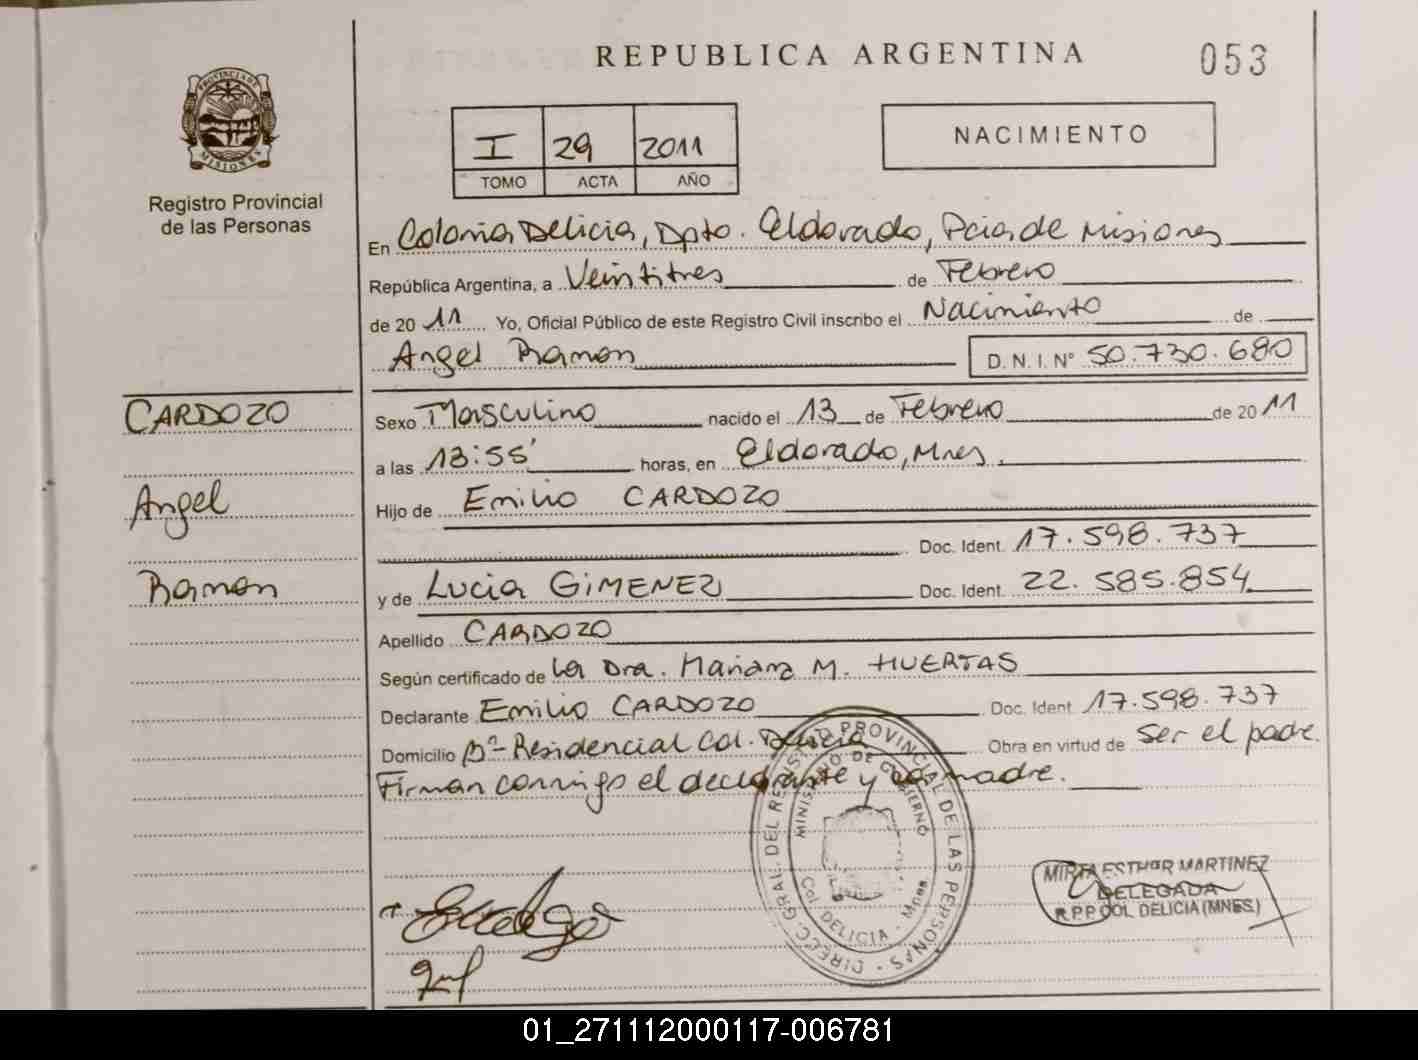 REPUBLICA ARGENTINA
053
PROVINCIA DE MISIONES
Registro Provincial
de las Personas
I 29 2011
TOMO ACTA AÑO
NACIMIENTO
En Colonia Delicia, Dpto. Eldorado, Pcia de Misiones
República Argentina, a Veintitres de Febrero
de 2011 Yo, Oficial Público de este Registro Civil inscribo el Nacimiento de
Angel Ramon D. N. I. Nº 50.730.680
CARDOZO
Angel
Ramon
Sexo Masculino nacido el 13 de Febrero de 2011
a las 13:55' horas, en Eldorado, Mnes.
Hijo de Emilio CARDOZO
Doc. Ident. 17.598.737
y de Lucia GIMENEZ Doc. Ident. 22.585.854
Apellido CARDOZO
Según certificado de La Dra. Mariana M. HUERTAS
Declarante Emilio CARDOZO Doc. Ident. 17.598.737
Domicilio Bº- Residencial Col. Delicia Obra en virtud de Ser el padre.
Firman conmigo el declarante y la madre.
DIRECC. GRAL. DEL REGISTRO PROVINCIAL DE LAS PERSONAS
MINISTERIO DE GOBIERNO
Col. DELICIA - Mnes
MIRTA ESTHER MARTINEZ
DELEGADA
R.P.P. COL. DELICIA (MNES.)
01_271112000117-006781